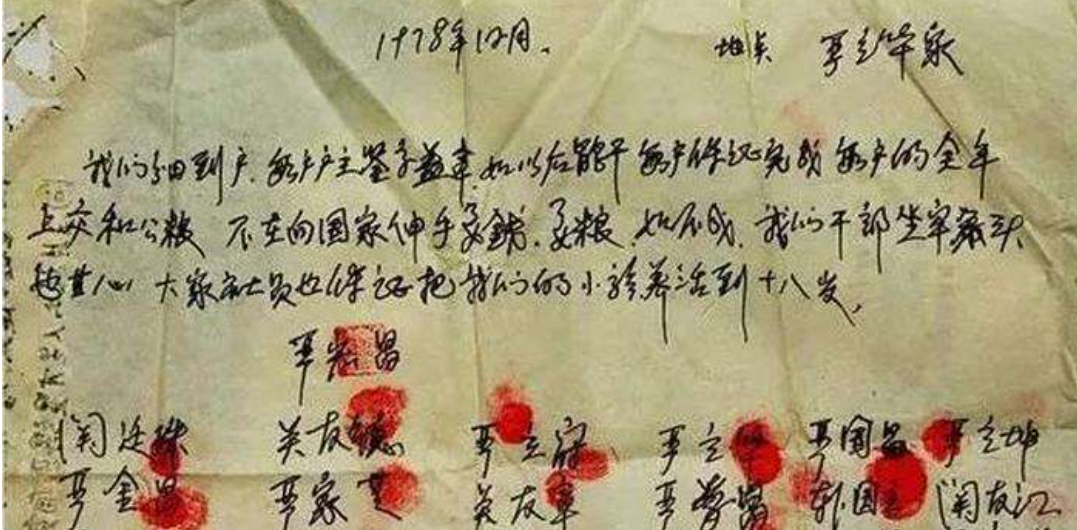 1978年12月. 地点 严立华家
我们分田到户.每户户主签字盖章.如以后能干每户保证完成每户的全年
上交和公粮 不在向国家伸手要钱.要粮.如不成.我们干部坐牢杀头
也甘心 大家社员也保证把我们的小孩养活到十八岁.
严宏昌
关廷珠 关友德 严立符 严立华 严国昌 严立坤
严金昌 严家芝 关友章 严学昌 韩国云 关友江